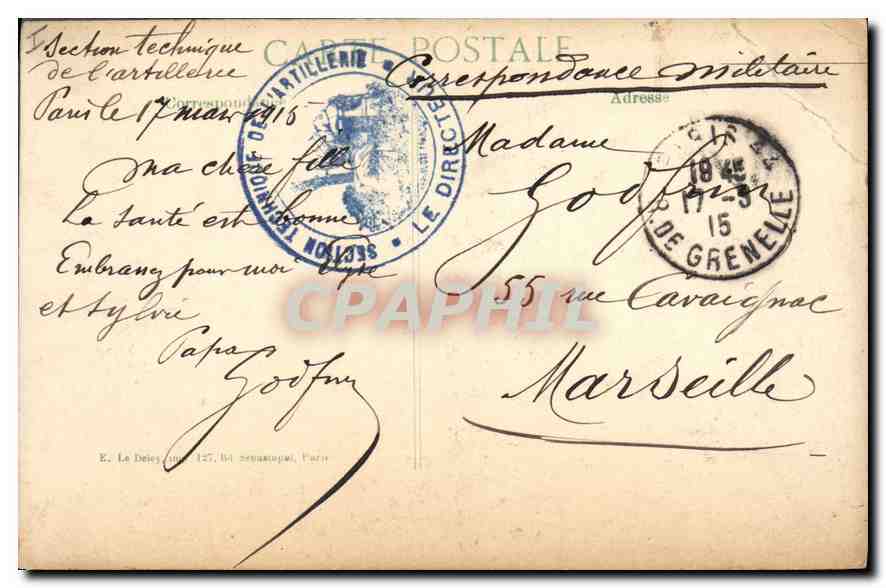 CARTE POSTALE
Correspondance
Adresse
Section technique
de l'artillerie
Paris le 17 mars 1915
ma chère fille
La santé est bonne
Embrassez pour moi
et Sylvie
Papa
Godfrin
SECTION TECHNIQUE DE L'ARTILLERIE
LE DIRECTEUR
Correspondance militaire
Madame
Godfrin
55 rue Cavaignac
Marseille
PARIS 44
19 45
17 - 3
15
R. DE GRENELLE
CPAPHIL
E. Le Deley, imp., 127, Bd Sébastopol, Paris